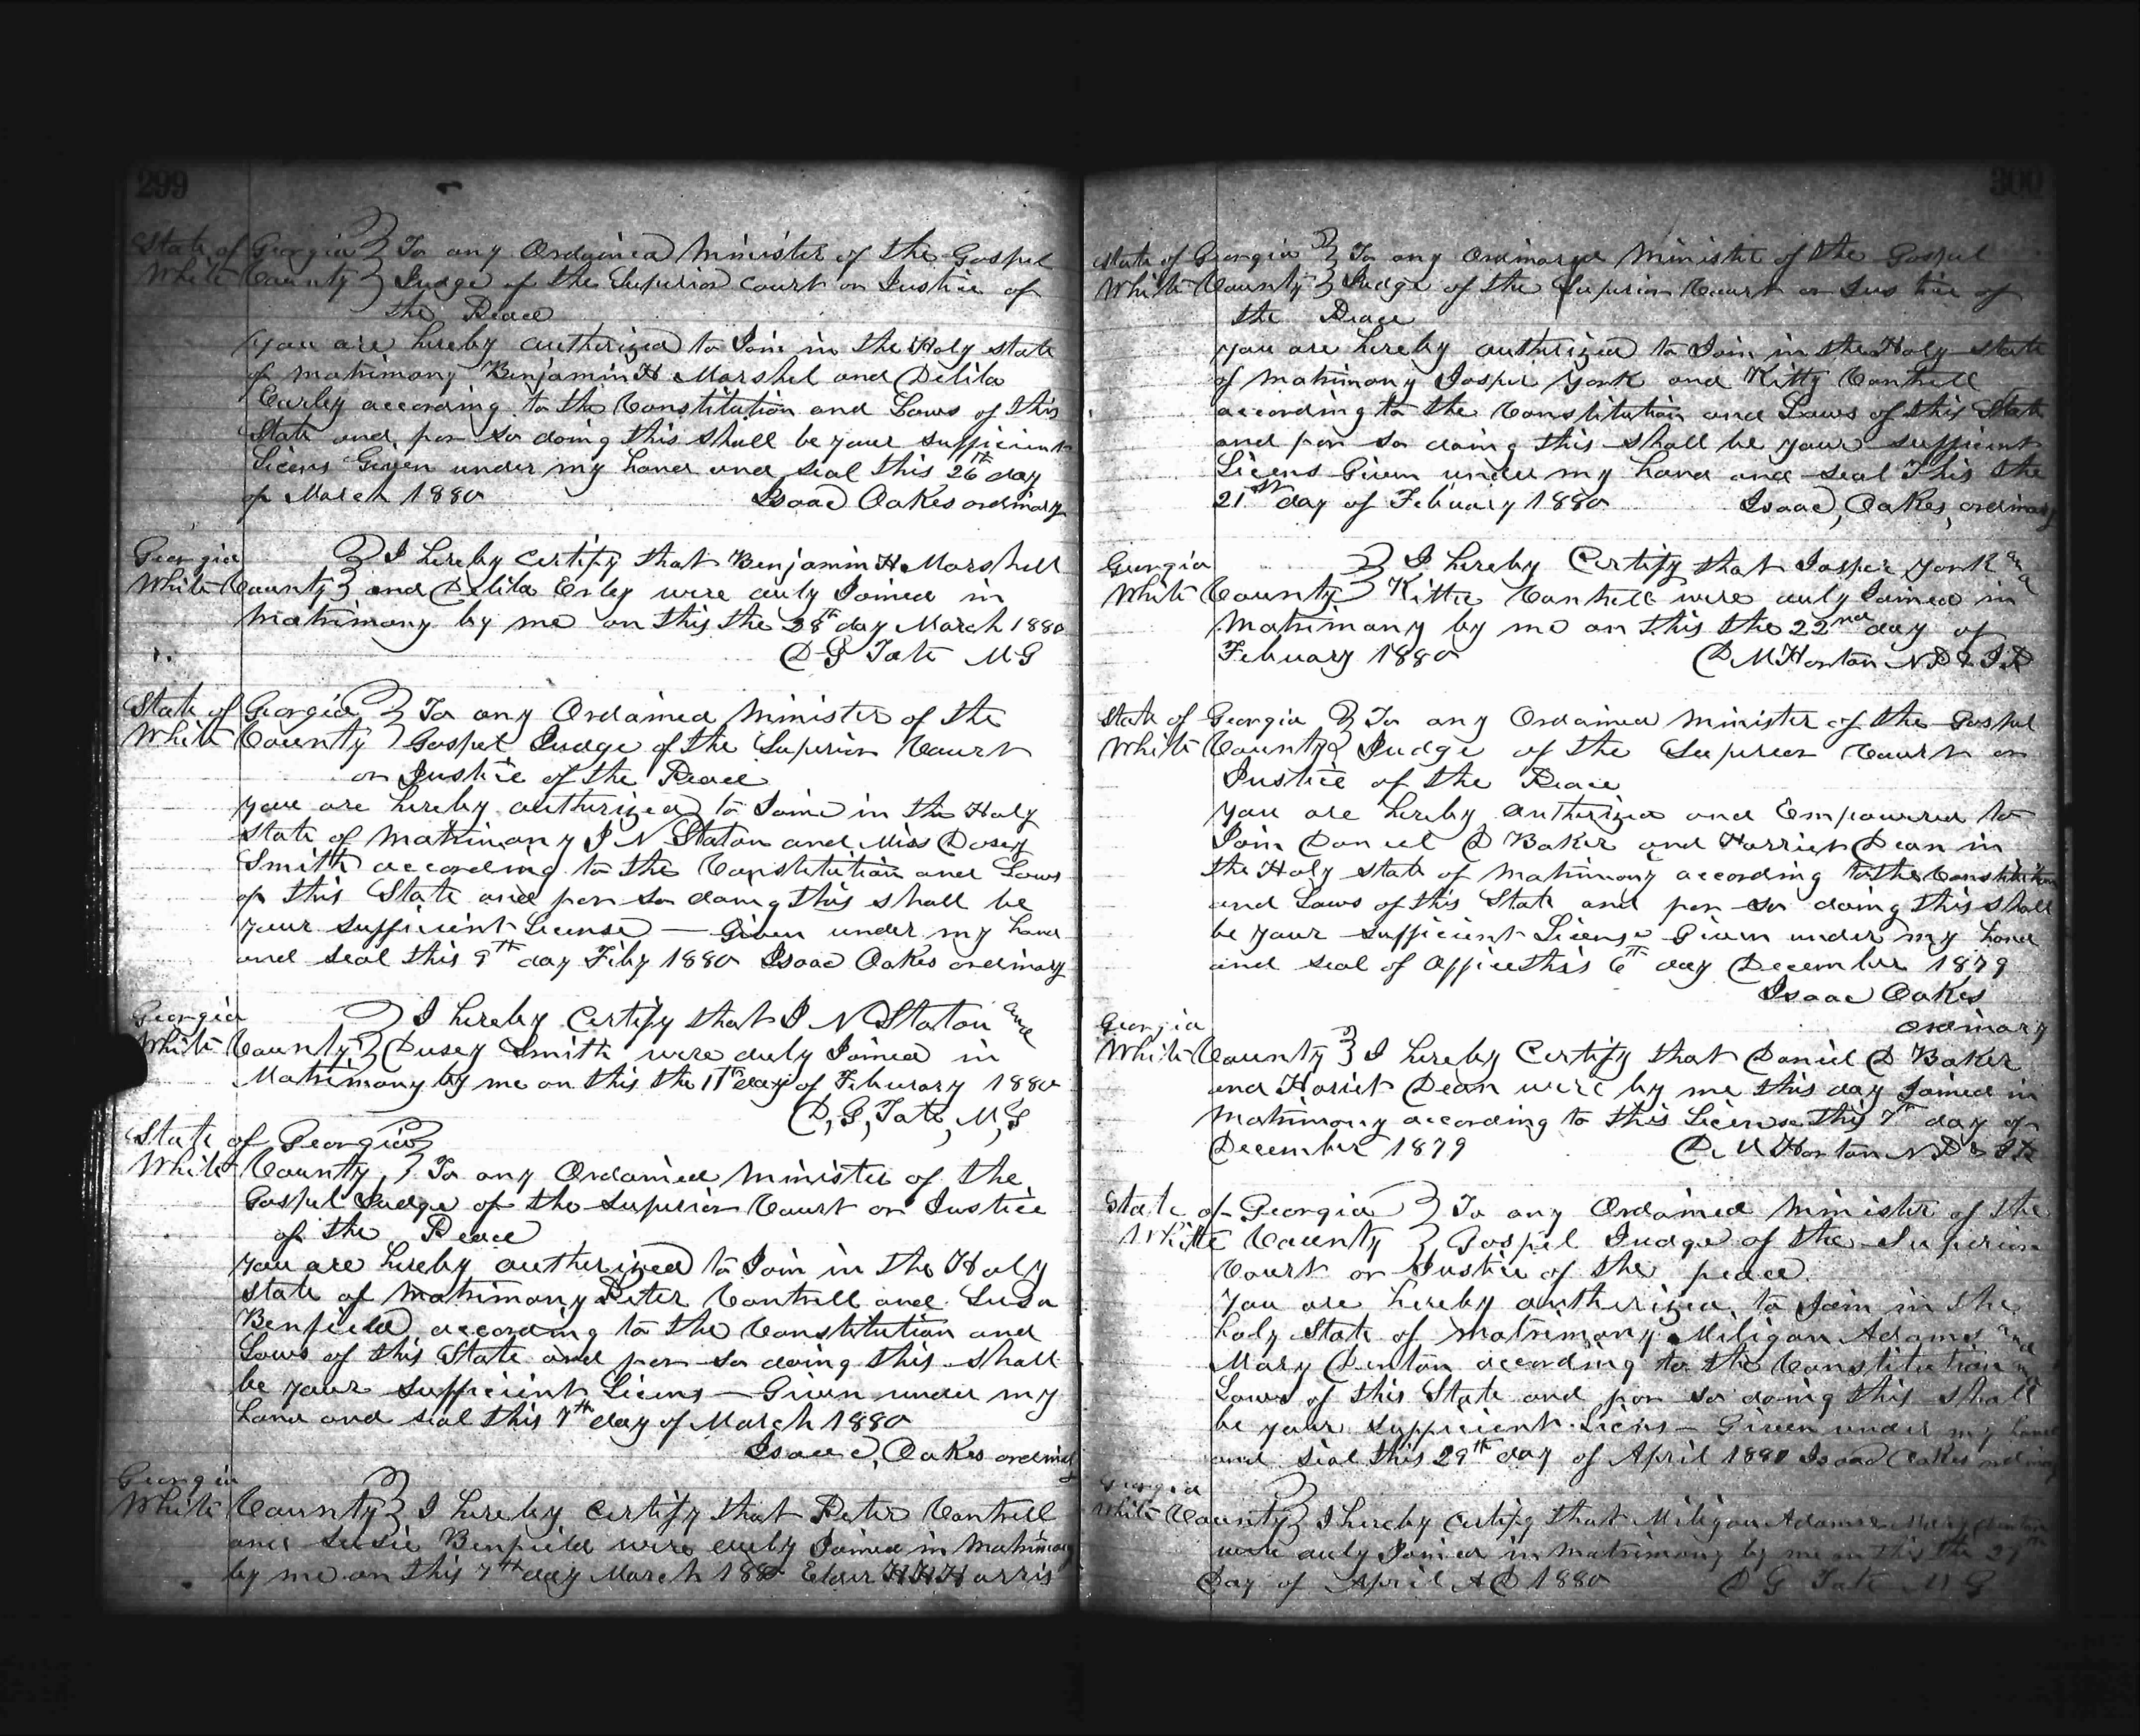 299
State of Georgia } To any Ordained Minister of the Gospel
White County } Judge of the Superior Court or Justice of
the Peace
you are hereby authorized to Join in the Holy state
of matrimony Benjamin H Marshel and Delila
Earley according to the Constitution and Laws of this
State and for so doing this shall be your sufficient
Licens Given under my hand and seal this 26th day
of March 1880 Isaac Oakes ordinary
Georgia
White County } I hereby certify that Benjamin H Marshell
and Delila Erley were duly Joined in
matrimony by me on this the 28th day March 1880
D G Tate M G
State of Georgia } To any Ordained Minister of the
White County } Gospel Judge of the Superior Court
or Justice of the Peace
you are hereby authorized to Joine in the Holy
state of matrimony J N Staton and Miss Dosey
Smith according to the Constitution and Laws
of this State and for so doing this shall be
your sufficient License — Given under my hand
and seal this 9th day Feby 1880 Isaac Oakes ordinary
Georgia
White County } I hereby Certify that J N Staton and
Dusey Smith were duly Joined in
Matrimony by me on this the 11th day of February 1880
D, G, Tate, M, G
State of Georgia }
White County, } To any Ordained minister of the
Gospel Judge of the Superior Court or Justice
of the Peace
you are hereby authorized to Join in the Holy
State of Matrimony Peter Cantrell and Susa
Benfield according to the Constitution and
Laws of this State and for so doing this shall
be your sufficient Licens — Given under my
hand and seal this 7th day of March 1880
Isaac, Oakes ordinary
Georgia
White County } I hereby certify that Peter Cantrell
and Susie Benfield were duly Joined in Matrimony
by me on this 7th day March 1880 Elder H H Harris
300
State of Georgia } To any Ordained Minister of the Gospel
White County } Judge of the Superior Court or Justice of
the Peace
you are hereby authorized to Join in the Holy state
of Matrimony Josper York and Kitty Cantrell
according to the Constitution and Laws of this State
and for so doing this shall be your sufficient
Licens Given under my hand and seal This the
21st day of February 1880 Isaac, Oakes, ordinary
Georgia
White County } I hereby Certify that Josper York and
Kittie Cantrell were duly Joined in
Matrimony by me on this the 22nd day of
February 1880 D. M Horton N P & J P
State of Georgia } To any Ordained Minister of the Gospel
White County } Judge of the Superior Court or
Justice of the Peace
you are hereby authorized and Empowered to
Join Daniel D Baker and Harriet Dean in
the Holy state of Matrimony according to the Constitution
and Laws of this State and for so doing this shall
be your sufficient License Given under my hand
and seal of office this 6th day December 1879
Isaac Oakes
ordinary
Georgia
White County } I hereby Certify that Daniel D Baker
and Hariet Dean were by me this day Joined in
Matrimony according to this License this 7th day of
December 1879 D. M Horton N P & J P
State of Georgia } To any Ordained Minister of the
White County } Gospel Judge of the Superior
Court or Justice of the peace
you are hereby authorized to Join in the
holy State of matrimony Miligan Adams and
Mary Denton according to the Constitution and
Laws of this State and for so doing this shall
be your sufficient Licens — Given under my hand
and seal this 29th day of April 1880 Isaac Oakes ordinary
Georgia
White County } I hereby Certify that Miligan Adams & Mary Denton
were duly Joined in matrimony by me on this the 29th
Day of April A D 1880 D G Tate M G